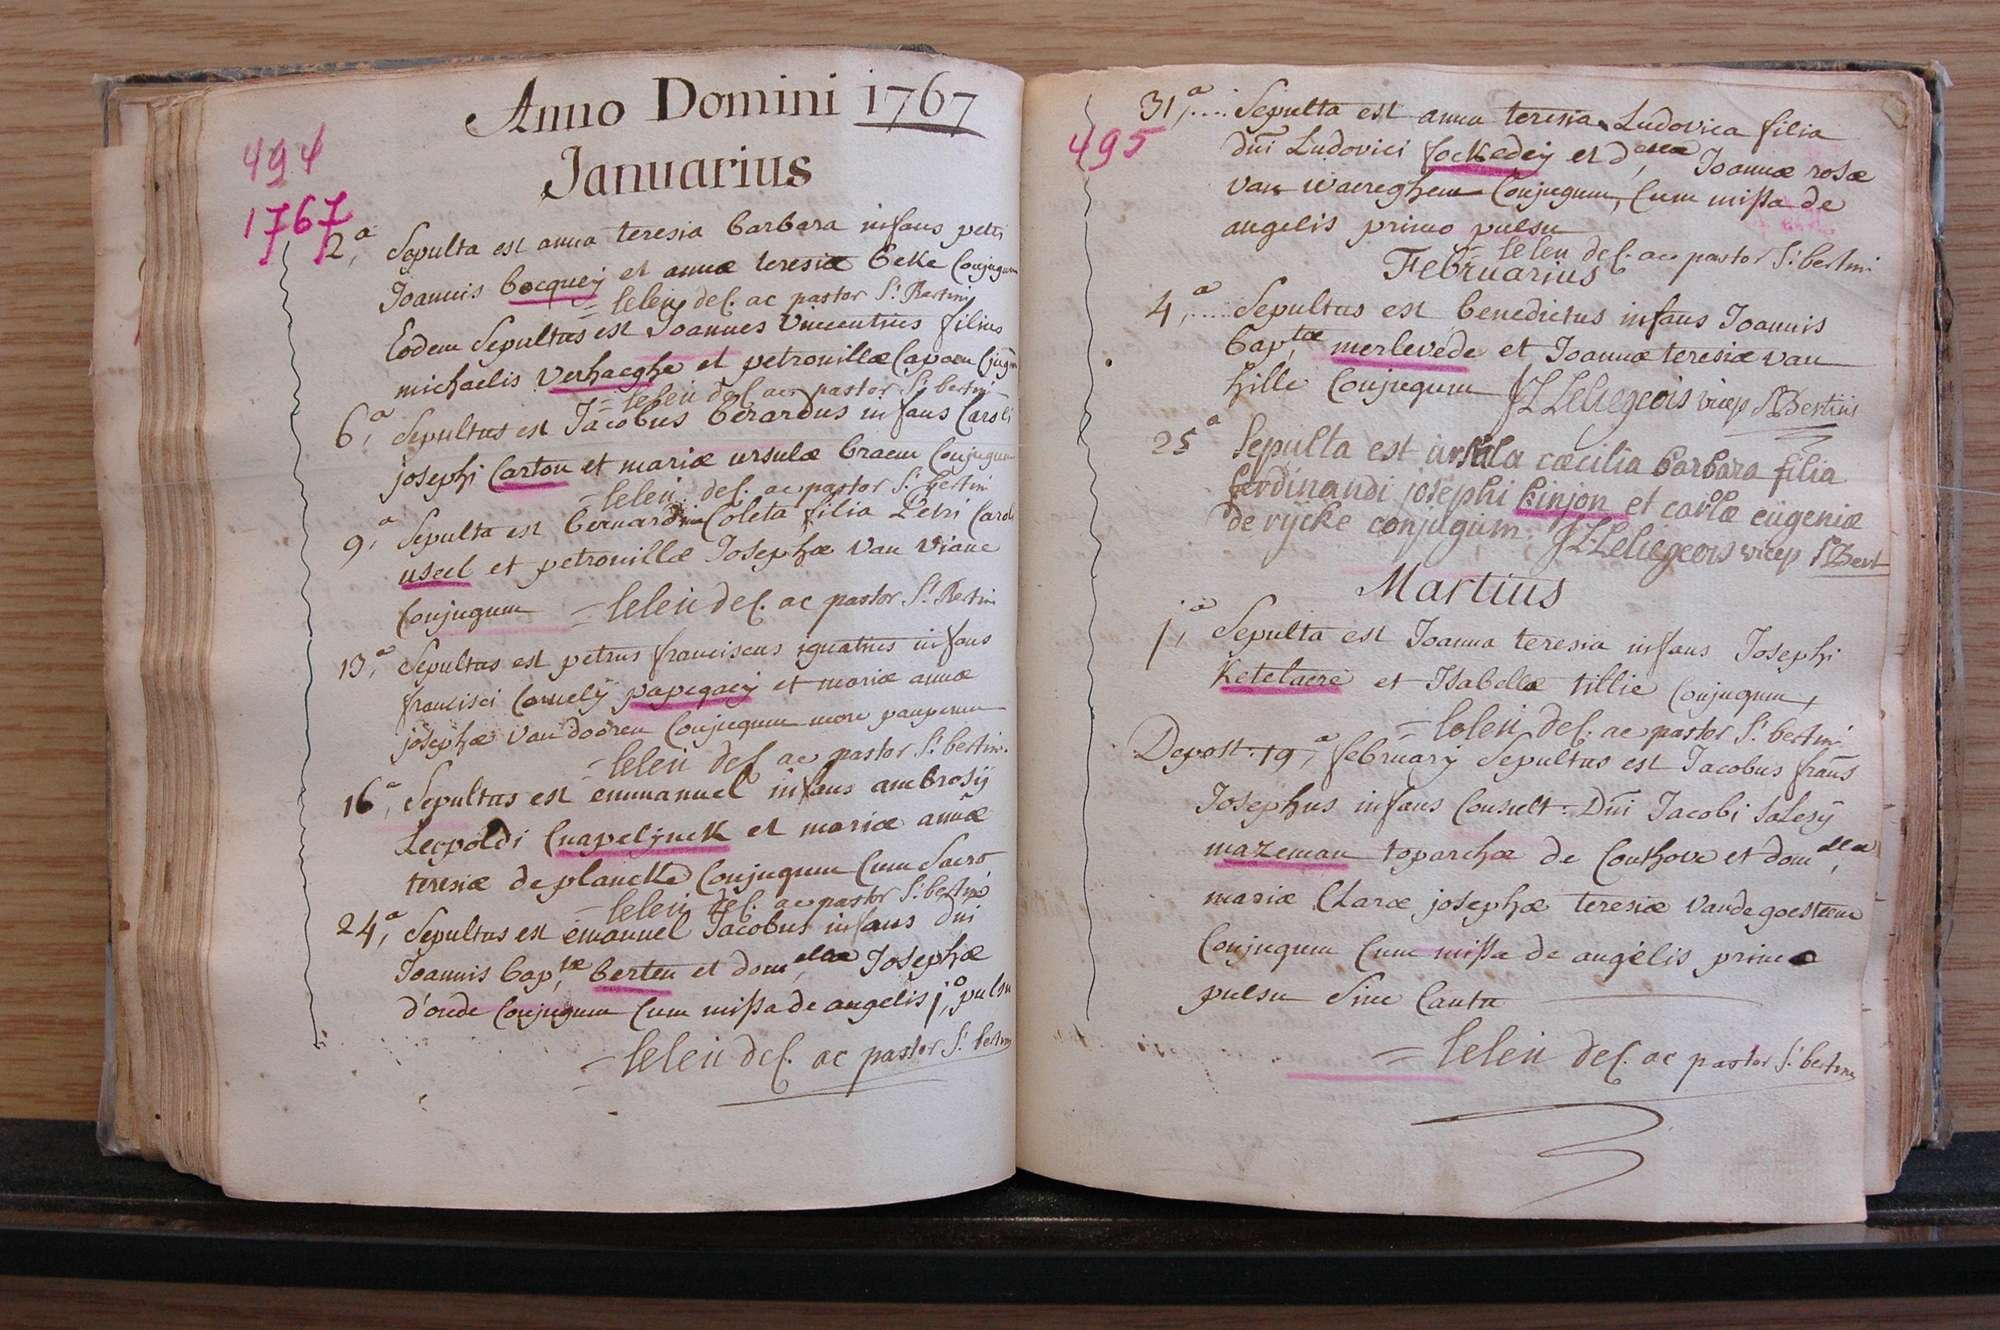 Anno Domini 1767
494
Januarius
1767
2,a Sepulta est anna teresia barbara infans petri
Joannis bocquey et annæ teresiæ beke Conjugum
= leleu dec. ac pastor St. Bertini
Eodem Sepultus est Joannes vincentius filius
michaelis verhaeghe et petronillæ Capoen Cjugm
= leleu dec. ac pastor St. bertini
6,a Sepultus est Jacobus berardus infans Caroli
josephi Carton et mariæ ursulæ braem Conjugum
= leleu dec. ac pastor St. bertini
9,a Sepulta est bernardina Coleta filia Petri Caroli
useel et petronillæ Josephæ van viane
Conjugum = leleu dec. ac pastor St. Bertini
13,a Sepultus est petrus franciscus ignatius infans
francisci Cornelÿ papegaey et mariæ annæ
josephæ van dooren Conjugum more pauperum
= leleu dec. ac pastor St. bertini.
16,a Sepultus est emmanuel infans ambrosÿ
Leopoldi Cnapelÿnck et mariæ annæ
teresiæ de plancke Conjugum Cum Sacro
= leleu dec. ac pastor St. bertini
24,a Sepultus est emanuel Jacobus infans dni
Joannis bap,tæ berten et dom,ellæ Josephæ
d'oude Conjugum Cum missa de angelis j,o pulsu
= leleu dec. ac pastor St. bertini
495
31,a .... Sepulta est anna teresia Ludovica filia
dni Ludovici fockedey et d,ellæ Joannæ rosæ
van waereghem Conjugum, Cum missa de
angelis primo pulsu
= leleu dec. ac pastor St. bertini
Februarius
4,a .... Sepultus est benedictus infans Joannis
bap,tæ merlevede et Joannæ teresiæ van
hille Conjugum JL Leliegeois vicep St Bertini
25a Sepulta est ursula cæcilia barbara filia
ferdinandi josephi kinjon et carlæ eügeniæ
de rycke conjugum. JL Leliegeois vicep St Bert
Martius
j,a Sepulta est Joanna teresia infans Josephi
Ketelaere et Isabellæ tillie Conjugum,
= leleu dec. ac pastor St. bertini
Depost. 19,a februarÿ Sepultus est Jacobus frans
Josephus infans Consult. Dni Jacobi Salesÿ
mazeman toparchæ de Couthove et dom,ellæ
mariæ Claræ josephæ teresiæ vande goesteene
Conjugum Cum missa de angelis primo
pulsu Sine Cantu
= leleu dec. ac pastor St. bertini